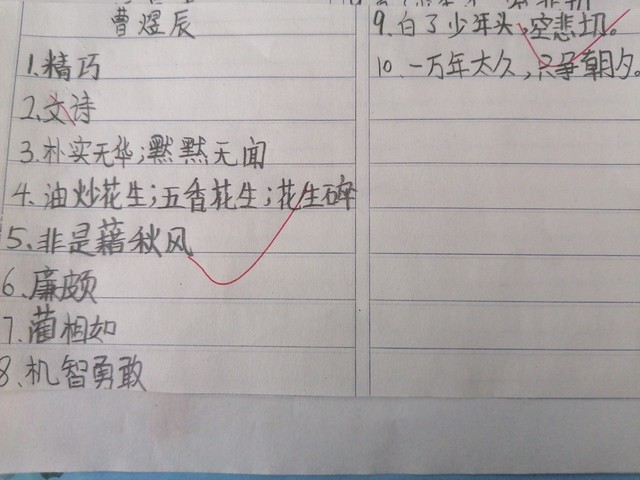 曹煜辰
1.精巧
2.文诗
3.朴实无华;默默无闻
4.油炒花生;五香花生;花生碎
5.非是藉秋风
6.廉颇
7.蔺相如
8.机智勇敢
9.白了少年头,空悲切。
10.一万年太久,只争朝夕。